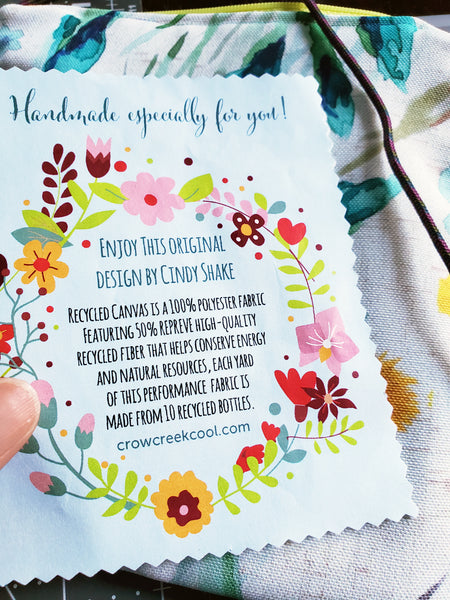 Handmade especially for you!
Enjoy This original
design by Cindy Shake
Recycled Canvas is a 100% polyester fabric
featuring 50% Repreve high-quality
recycled fiber that helps conserve energy
and natural resources, each yard
of this performance fabric is
made from 10 recycled bottles.
crowcreekcool.com